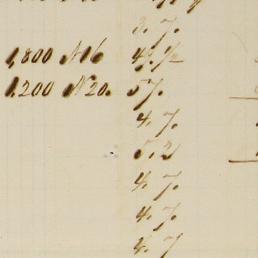 3.7.
1,800 N16 4.½
1.200 N20. 57.
4.7.
5.2
4.7.
4.7.
4.7